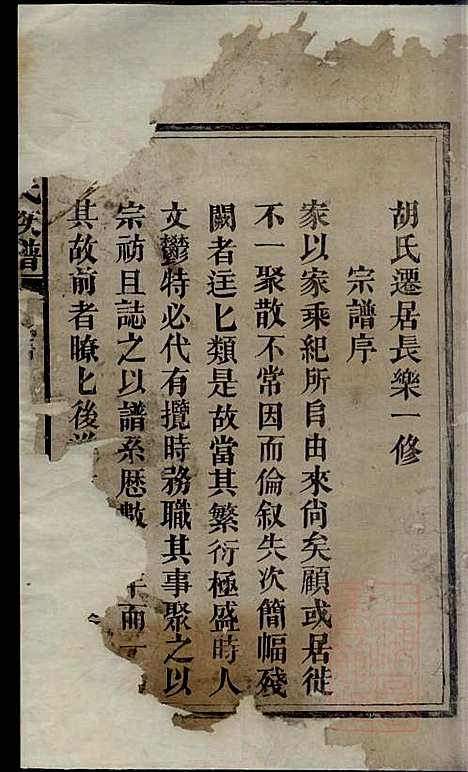 胡氏遷居長樂一修
宗譜序
家以家乘紀所自由來尙矣顧或居徙
不一聚散不常因而倫叙失次簡幅殘
闕者迋匕類是故當其繁衍極盛時人
文欝特必代有攬時務職其事聚之以
宗祊且誌之以譜系歷數 年而一
其故前者瞭匕後
氏族譜